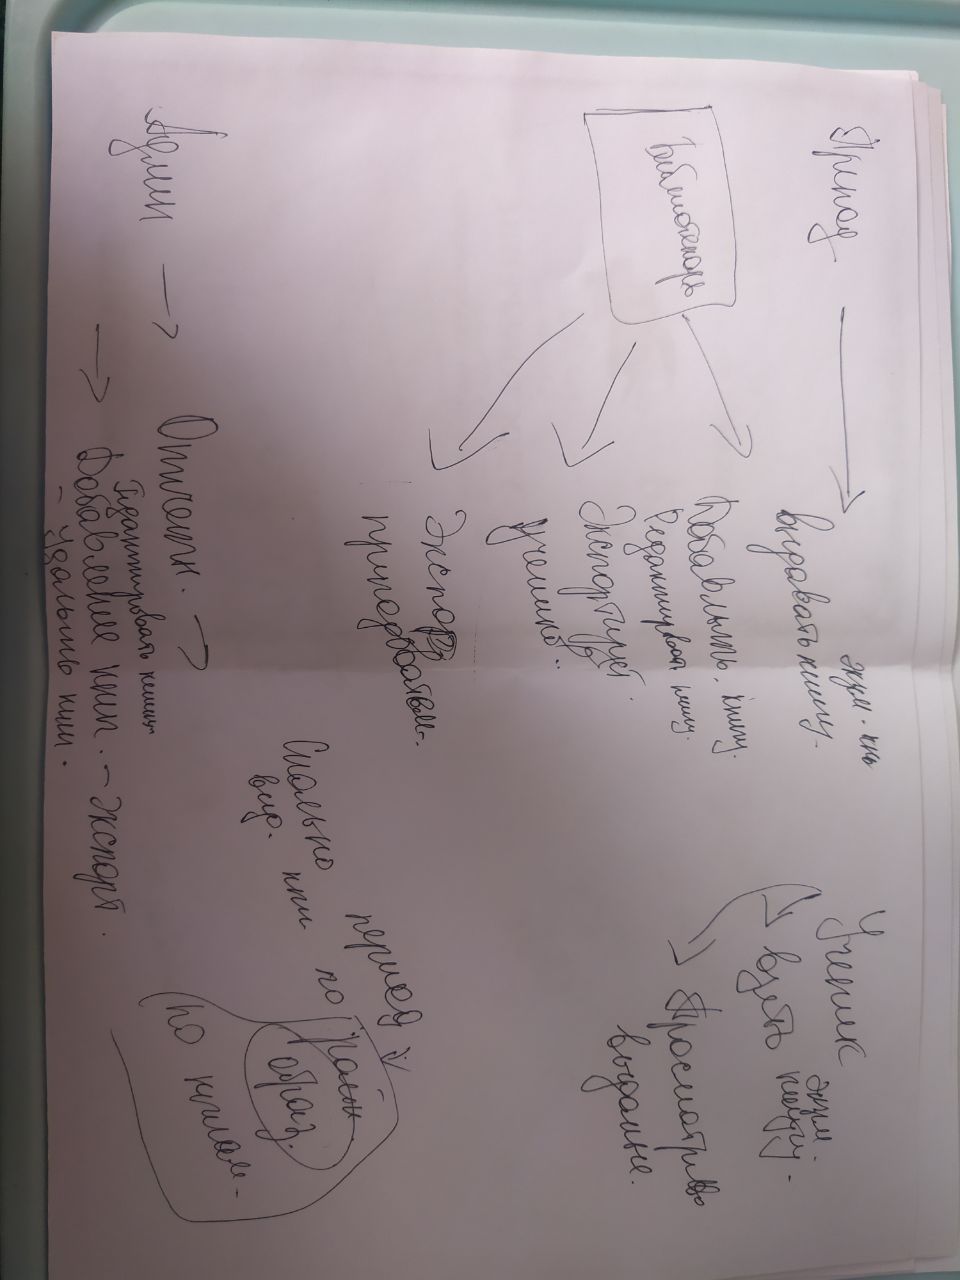 Препод
экзм. кнь
выдавать книгу.
Библиотекарь
Добавлять. книгу.
Редактировать книгу.
Экспортирует
учеников..
Экспор.
Ученик
экзм.
взять книгу.
Просматрива
выданые.
Сколько период
выд. кни по
образ.
по книгам.
Админ
Отчетн.
Редактировать книги
Добавление книг. - экспорт.
- Удалить кни.